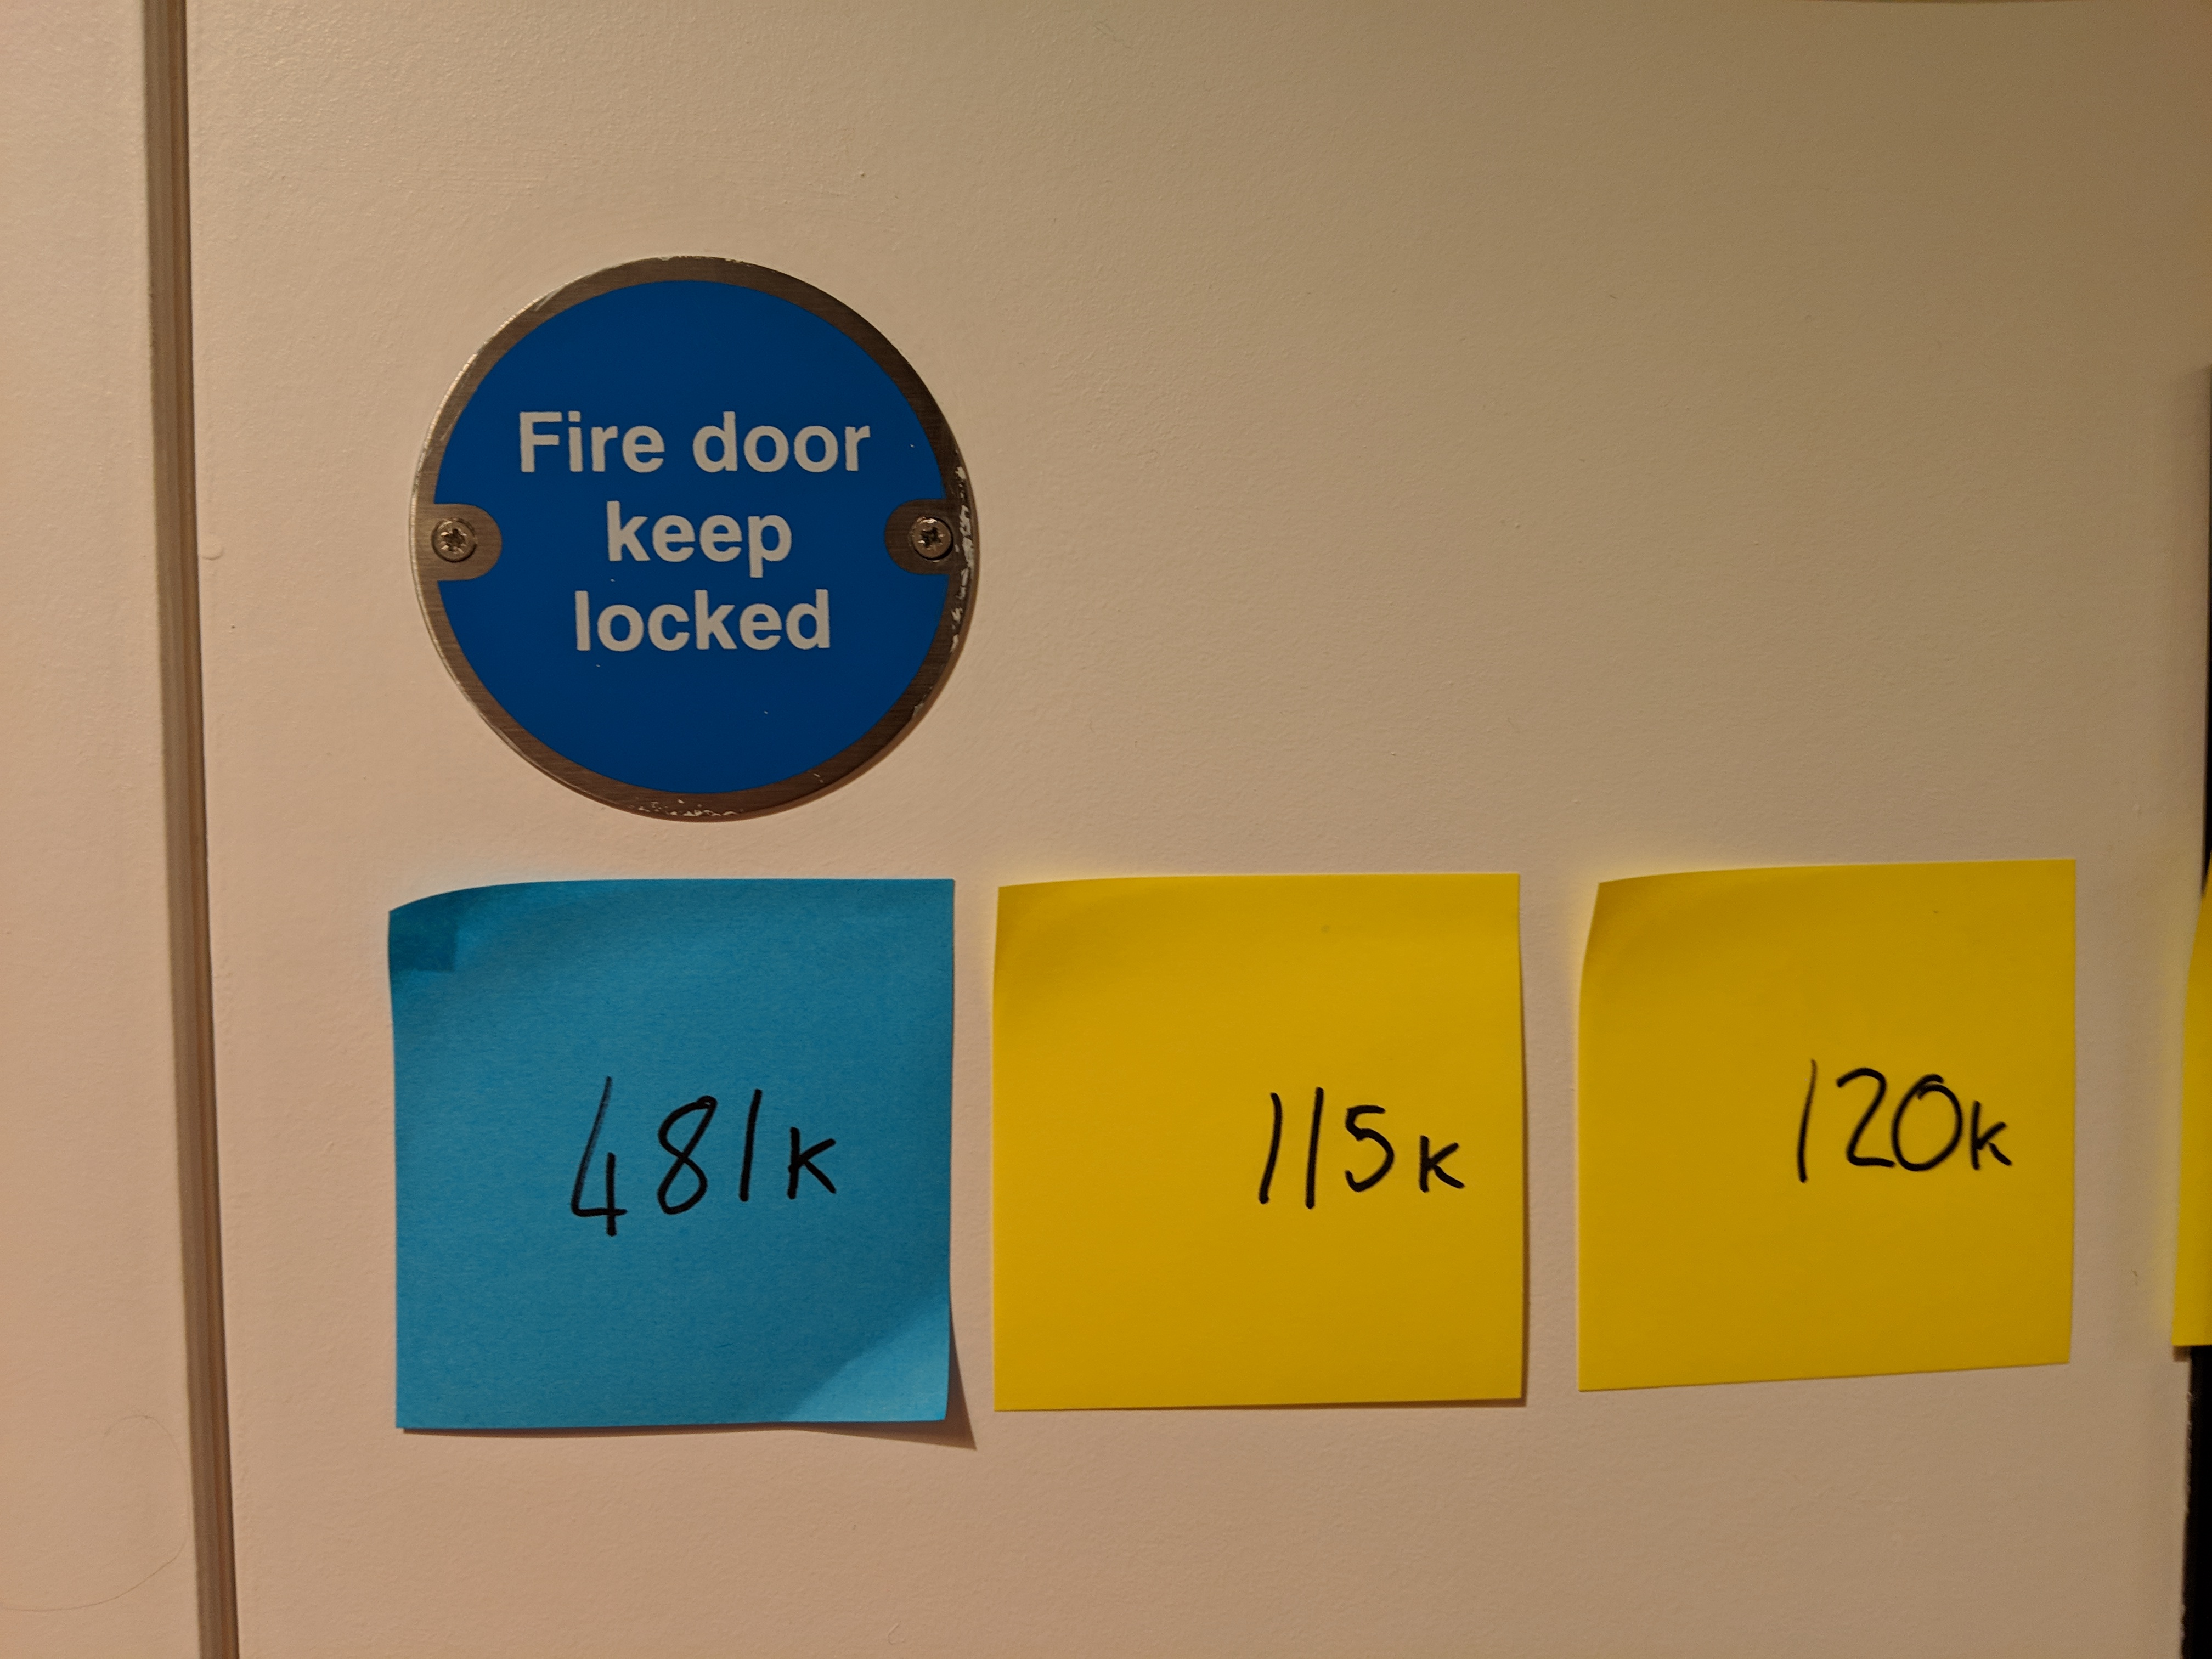 Fire door
keep
locked
481k
115k
120k